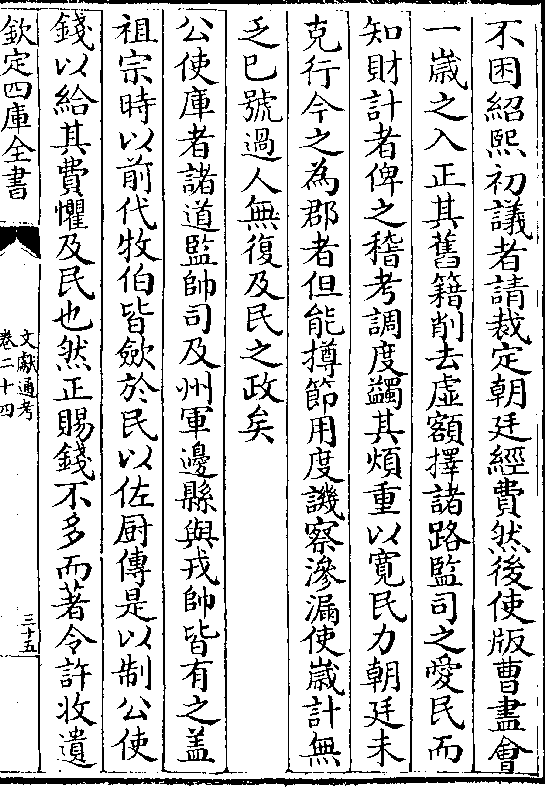 不困紹熙初議者請裁定朝廷經費然後使版曹盡會
一嵗之入正其舊籍削去虚額擇諸路監司之愛民而
知財計者俾之稽考調度蠲其煩重以寛民力朝廷未
克行今之為郡者但能撙節用度譏察滲漏使嵗計無
乏已號過人無復及民之政矣
公使庫者諸道監帥司及州軍邊縣與戎帥皆有之盖
祖宗時以前代牧伯皆歛於民以佐厨傳是以制公使
錢以給其費懼及民也然正賜錢不多而著令許收遺
欽定四庫全書
文獻通考
卷二十四
三十五